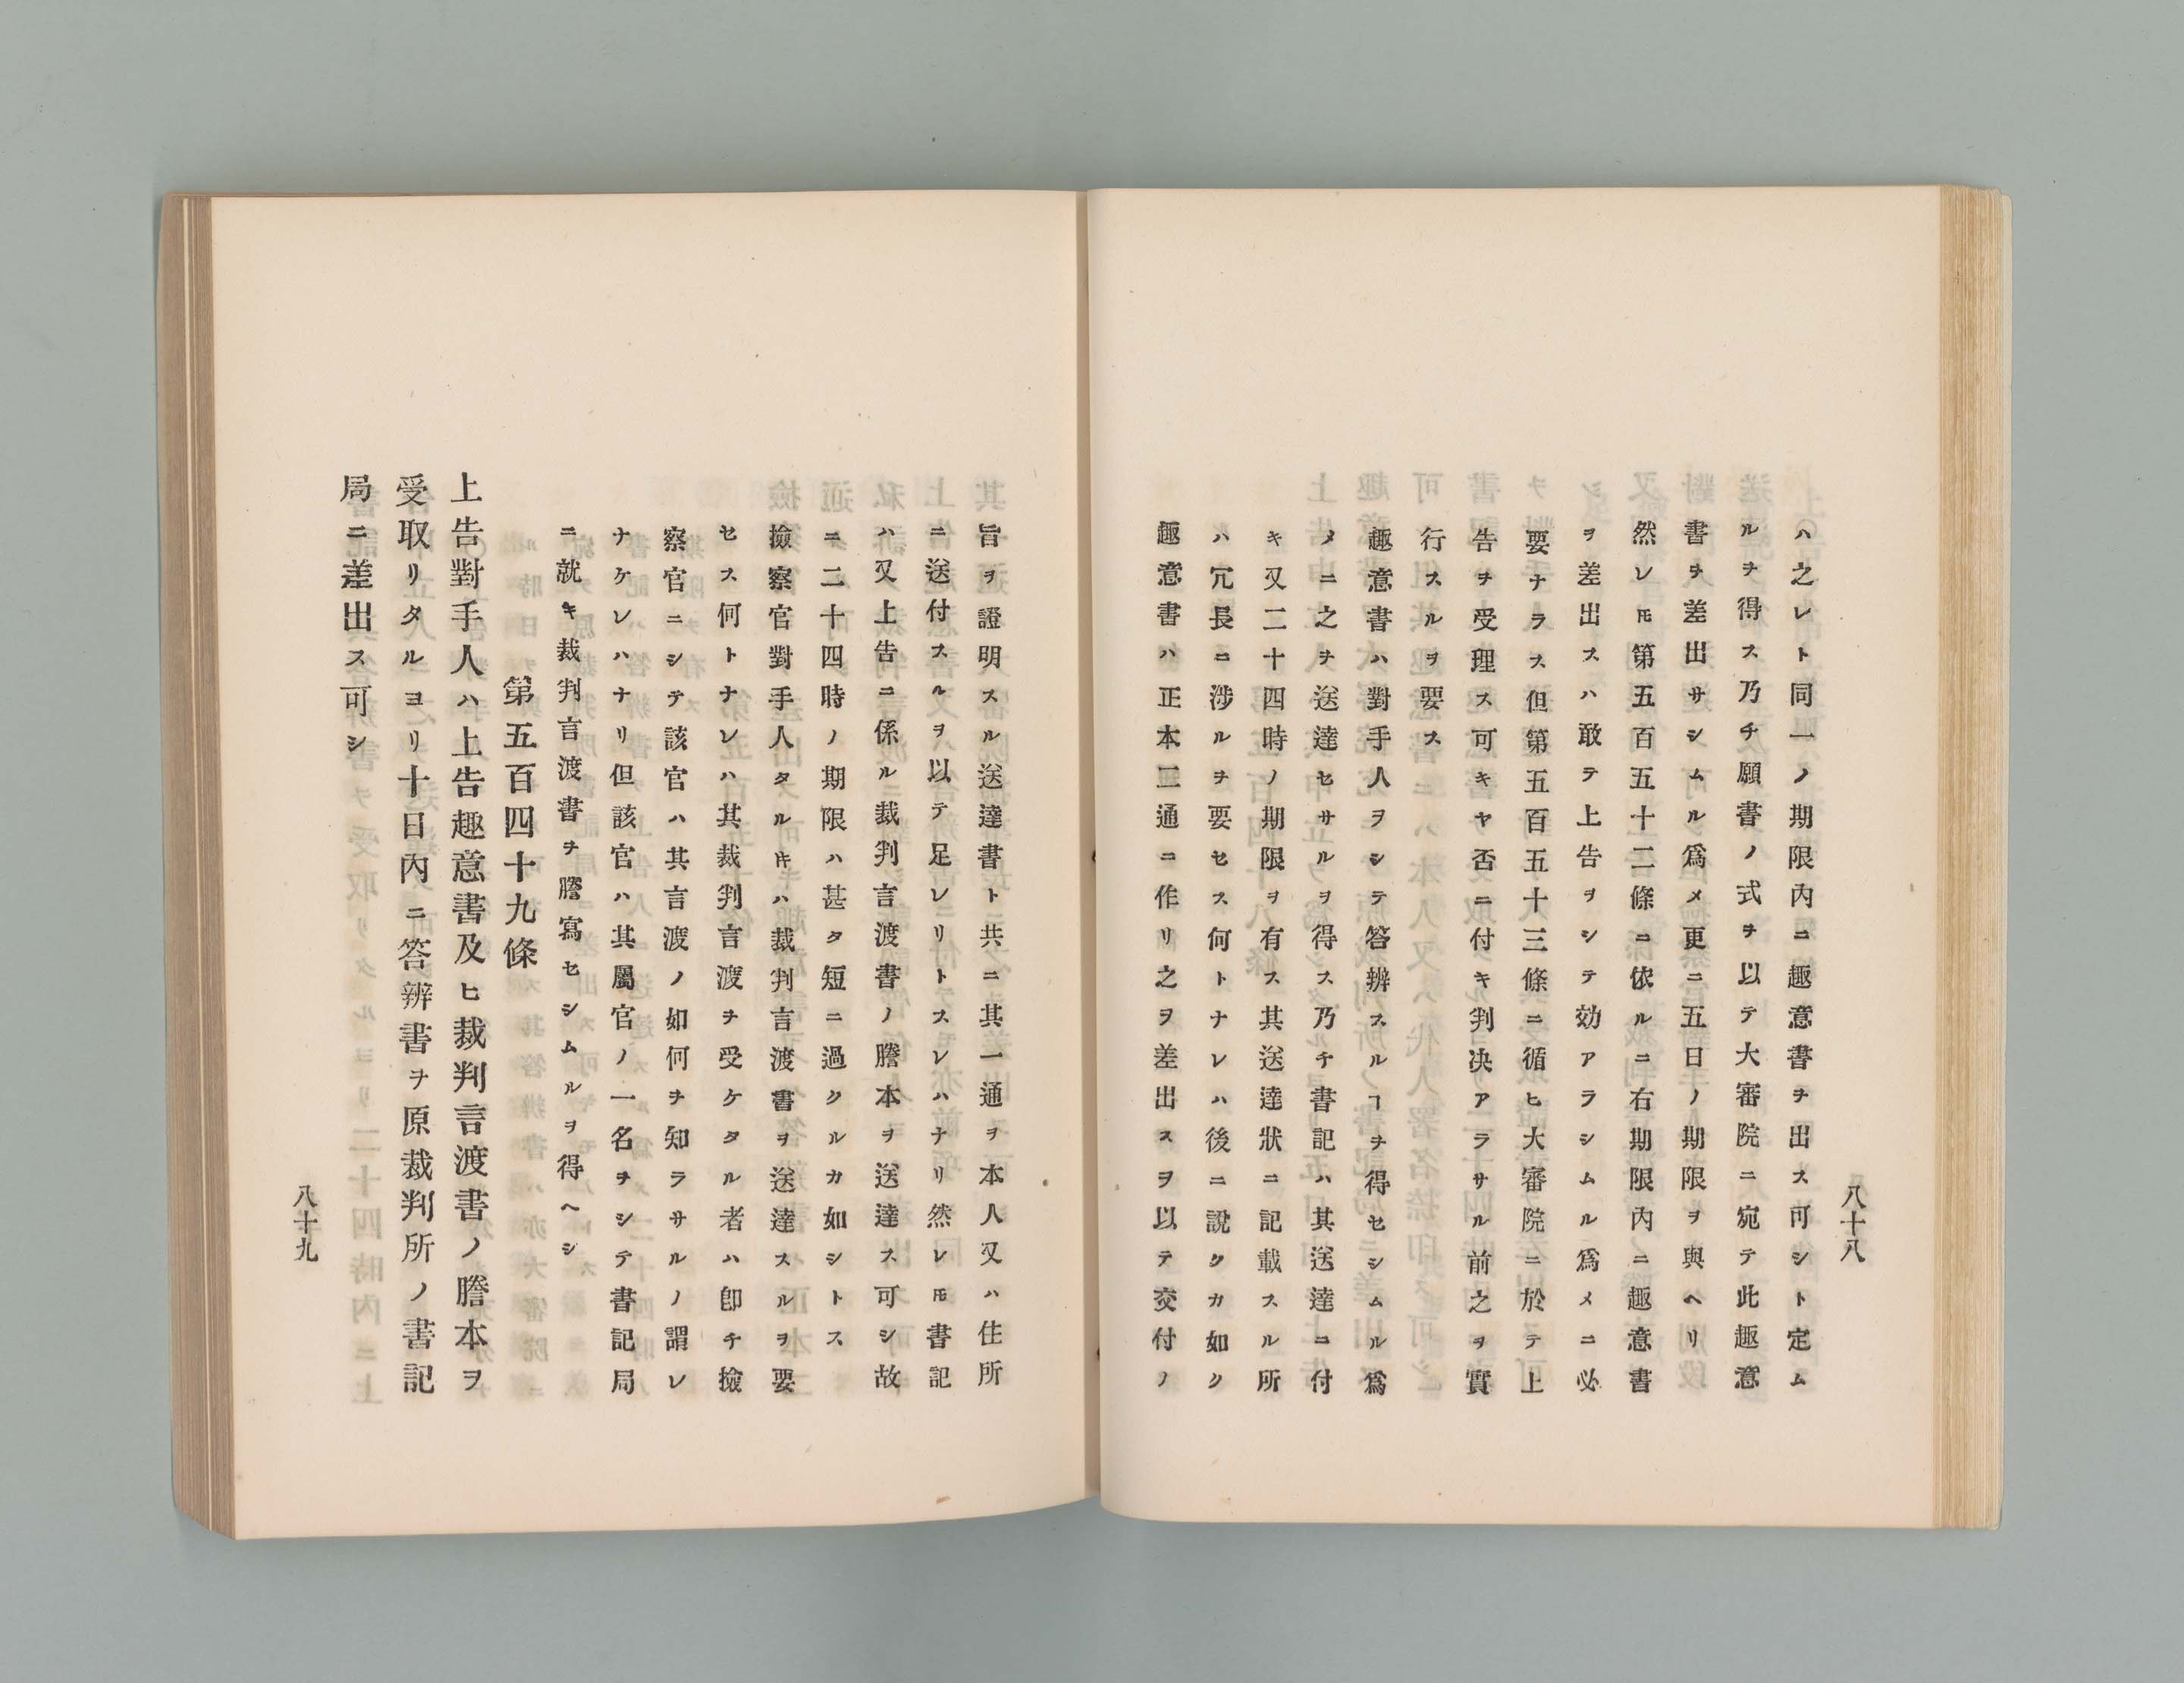 八十八
ハ之レト同一ノ期限內ニ趣意書ヲ出ス可シト定ム
ルヲ得ス乃チ願書ノ式ヲ以テ大審院ニ宛テ此趣意
書ヲ差出サシムル爲メ更ニ五日ノ期限ヲ與ヘリ
然レ𪜈第五百五十二條ニ依ルニ右期限內ニ趣意書
ヲ差出スハ敢テ上告ヲシテ効アラシムル爲メニ必
要ナラス但第五百五十三條ニ循ヒ大審院ニ於テ上
告ヲ受理ス可キヤ否ニ付キ判决アラサル前之ヲ實
行スルヲ要ス
趣意書ハ對手人ヲシテ答辨スルヿヲ得セシムル爲
メニ之ヲ送達セサルヲ得ス乃チ書記ハ其送達ニ付
キ又二十四時ノ期限ヲ有ス其送達狀ニ記載スル所
ハ冗長ニ涉ルヲ要セス何トナレハ後ニ說クカ如ク
趣意書ハ正本二通ニ作リ之ヲ差出スヲ以テ交付ノ
旨ヲ證明スル送達書ト共ニ其一通ヲ本人又ハ住所
ニ送付スルヲ以テ足レリトスレハナリ然レ𪜈書記
ハ又上告ニ係ル裁判言渡書ノ謄本ヲ送達ス可シ故
ニ二十四時ノ期限ハ甚タ短ニ過クルカ如シトス
撿察官對手人タルキハ裁判言渡書ヲ送達スルヲ要
セス何トナレハ其裁判言渡ヲ受ケタル者ハ卽チ撿
察官ニシテ該官ハ其言渡ノ如何ヲ知ラサルノ謂レ
ナケレハナリ但該官ハ其屬官ノ一名ヲシテ書記局
ニ就キ裁判言渡書ヲ謄寫セシムルヲ得ヘシ
第五百四十九條
上告對手人ハ上告趣意書及ヒ裁判言渡書ノ謄本ヲ
受取リタルヨリ十日內ニ答辨書ヲ原裁判所ノ書記
局ニ差出ス可シ
八十九